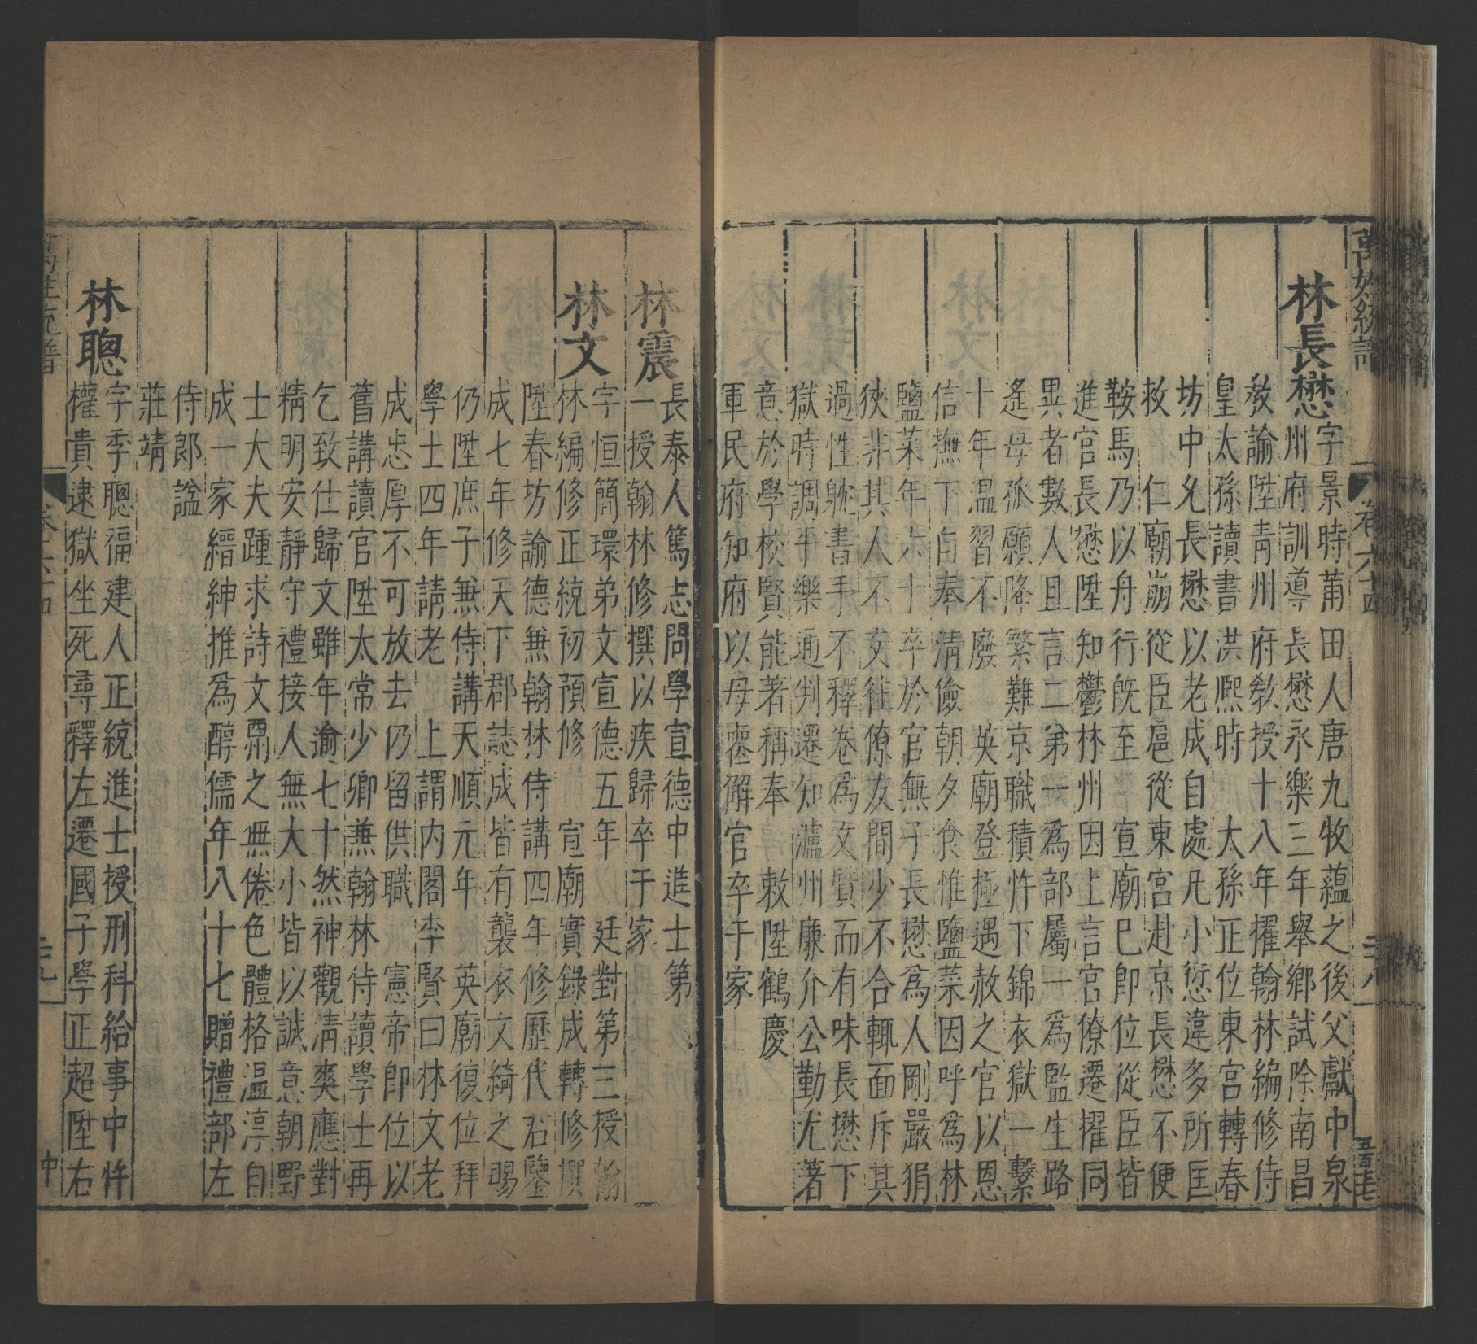 萬姓統譜
卷六十四
三十八
林長懋字景時莆田人唐九牧蘊之後父獻中泉
州府訓導長懋永樂三年舉鄉試除南昌
教諭陞青州府教授十八年擢翰林編修侍
皇太孫讀書洪熙時 太孫正位東宮轉春
坊中允長懋以老成自處凡小愆違多所匡
救 仁廟崩從臣扈從東宮赴京長懋不便
鞍馬乃以舟行既至 宣廟巳即位從臣皆
進官長懋陞知鬱林州因上言官僚遷擢同
異者數人且言二第一為部屬一為監生路
遙母孤願降繁難京職積忤下錦衣獄一繫
十年温習不廢 英廟登極遇赦之官以恩
信撫下自奉清儉朝夕食惟鹽菜因呼為林
鹽菜年六十卒於官無子長懋為人剛嚴狷
狹非其人不交往僚友間少不合輒面斥其
過性躭書手不釋卷為文實而有味長懋下
獄時調平樂通判遷知瀘州廉介公勤尤著
意於學校賢能著稱奉 敕陞鶴慶
軍民府知府以母壅懈官卒于家
林震長泰人篤志問學宣德中進士第
一授翰林修撰以疾歸卒于家
林文字恒簡環弟文宣德五年 廷對第三授翰
林編修正統初預修 宣廟實錄成轉修撰
陞春坊諭德兼翰林侍講四年修歷代君鑒
成七年修天下郡誌成皆有襲衣文綺之賜
仍陞庶子兼侍講天順元年 英廟復位拜
學士四年請老 上謂内閣李賢曰林文老
成忠厚不可放去仍留供職 憲帝即位以
舊講讀官陞太常少卿兼翰林侍讀學士再
乞致仕歸文雖年逾七十然神觀清爽應對
精明安靜守禮接人無大小皆以誠意朝野
士大夫踵求詩文閙之無倦色體格温淳自
成一家縉紳推為醇儒年八十七贈禮部左
侍郎諡
莊靖
林聰字季聰福建人正統進士授刑科給事中忤
權貴逮獄坐死尋釋左遷國子學正超陞右
萬姓統譜
卷六十四
三十九
中